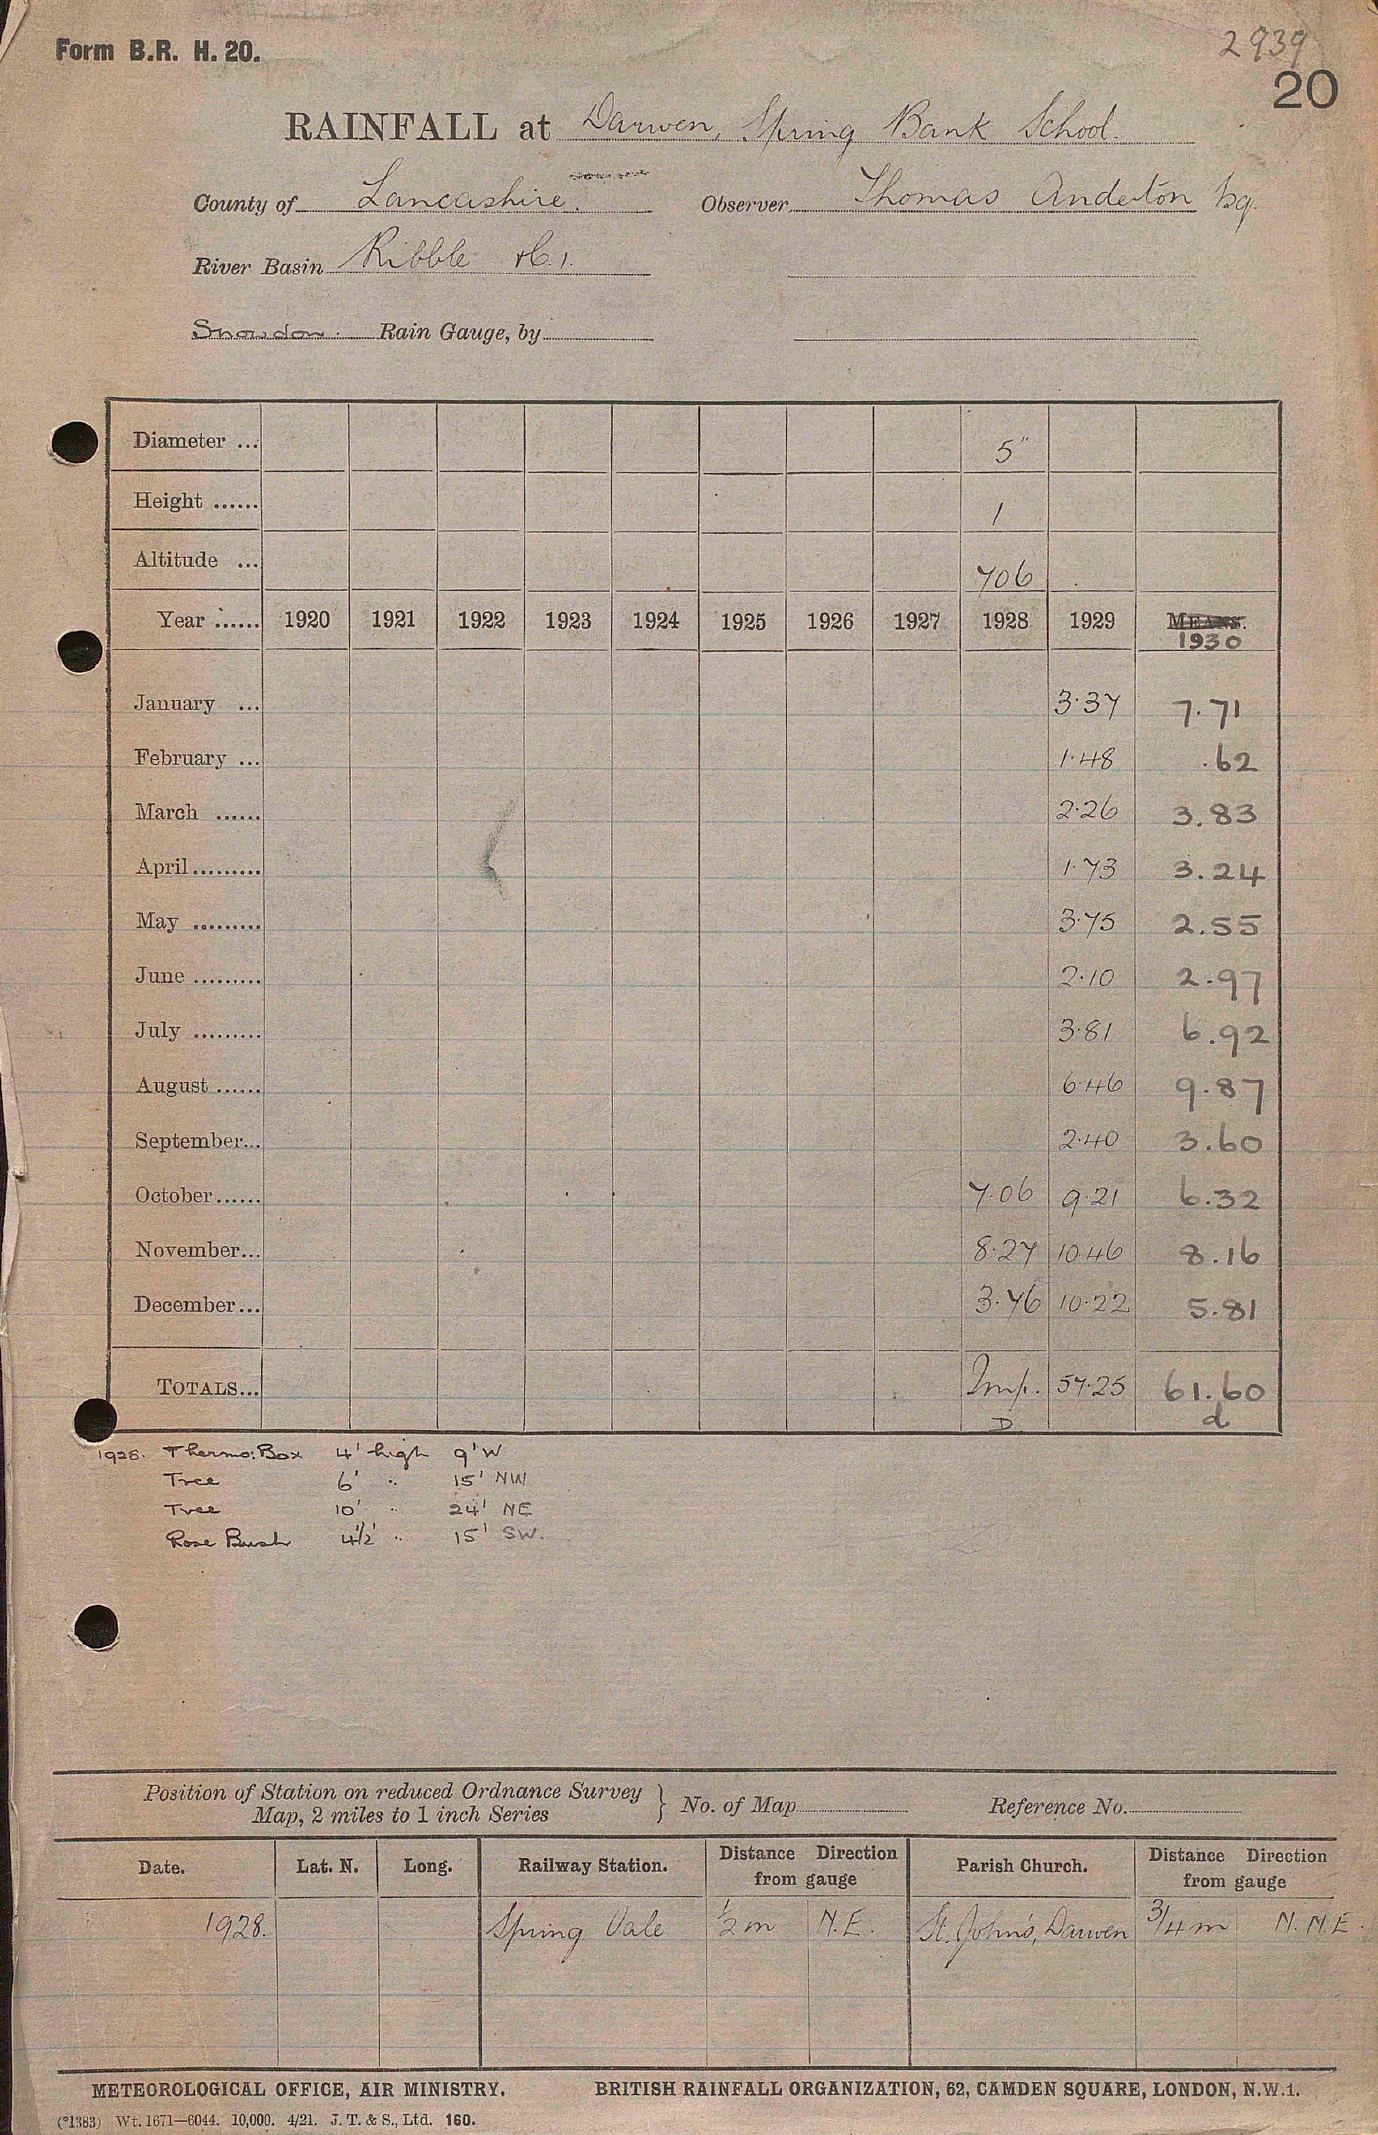 Form B.R. H. 20.
2939
20
RAINFALL at Darwen, Spring Bank School.
County of Lancashire. Observer Thomas Anderton Esq.
River Basin Ribble
Snowdon. Rain Gauge, by
Diameter ... 5"
Height ...... 1
Altitude ... 706
Year ...... 1920 1921 1922 1923 1924 1925 1926 1927 1928 1929 MEANS.
1930
January ... 3.37 7.71
February ... 1.48 .62
March ...... 2.26 3.83
April......... 1.73 3.24
May ......... 3.75 2.55
June ......... 2.10 2.97
July ......... 3.81 6.92
August ...... 6.46 9.87
September... 2.40 3.60
October...... 7.06 9.21 6.32
November... 8.27 10.46 8.16
December... 3.76 10.22 5.81
TOTALS... Imp. 57.25 61.60
D d
1928. Thermo: Box 4' high 9' W
Tree 6' " 15' NW
Tree 10' " 24' NE
Rose Bush 4½' " 15' SW.
Position of Station on reduced Ordnance Survey
Map, 2 miles to 1 inch Series } No. of Map Reference No.
Date. Lat. N. Long. Railway Station. Distance Direction from gauge Parish Church. Distance Direction from gauge
1928. Spring Vale ½ m N.E. St. John's, Darwen ¾ m N.N.E.
METEOROLOGICAL OFFICE, AIR MINISTRY. BRITISH RAINFALL ORGANIZATION, 62, CAMDEN SQUARE, LONDON, N.W.1.
(*1383) Wt. 1671—6044. 10,000. 4/21. J. T. & S., Ltd. 160.